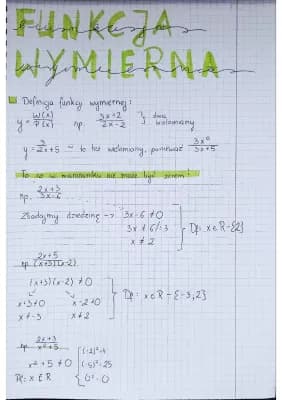 FUNKCJA
WYMIERNA
Definicja funkcji wymiernej:
y = W(x)/P(x) np. 3x+2/2x-2 } dwa wielomiany
y = 3/2x+5 - to też wielomiany, ponieważ 3x⁰/2x+5
To co w mianowniku nie może być zerem!
np. 2x+3/3x-6
Zbadajmy dziedzinę → 3x-6 ≠ 0
3x ≠ 6 /:3
x ≠ 2
D: x∈R-{2}
np. 2x+5/(x+3)(x-2)
(x+3)(x-2) ≠ 0
x+3≠0 x-2≠0
x≠-3 x≠2
D: x∈R-{-3,2}
np. 2x+3/x²+5
x²+5 ≠ 0
D: x∈R
(-2)²=4
(-5)²=25
0²=0